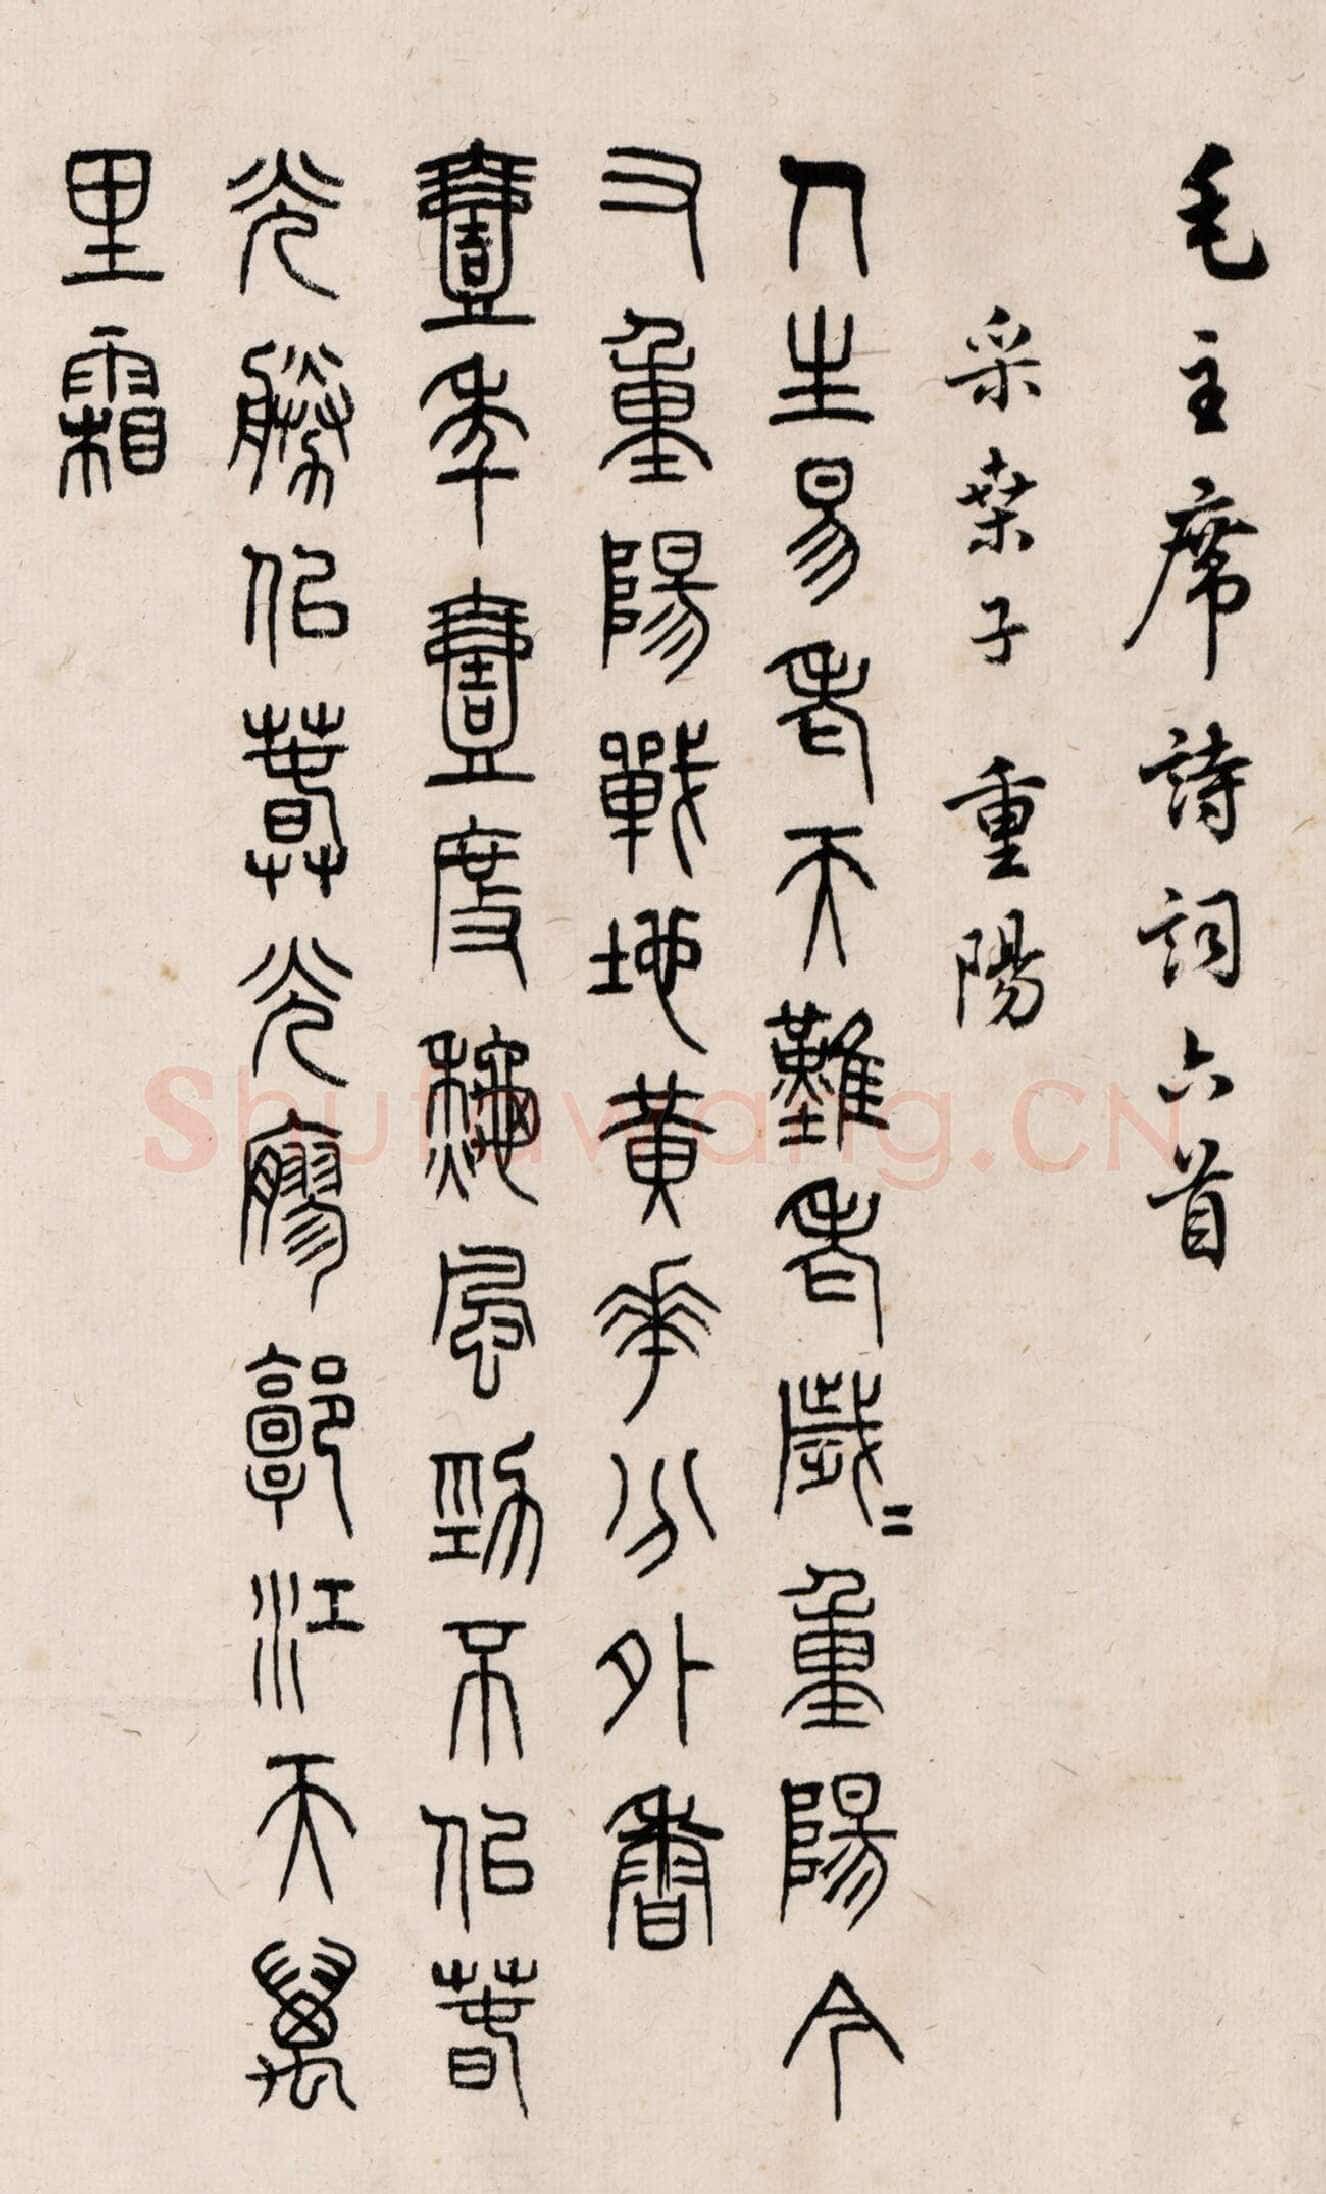 毛主席詩詞六首
采桑子 重陽
人生易老天難老歲〻重陽今
又重陽戰地黃華分外香
壹年壹度秋風勁不佀春
光勝佀春光廖郭江天萬
里霜
Shufawang.CN